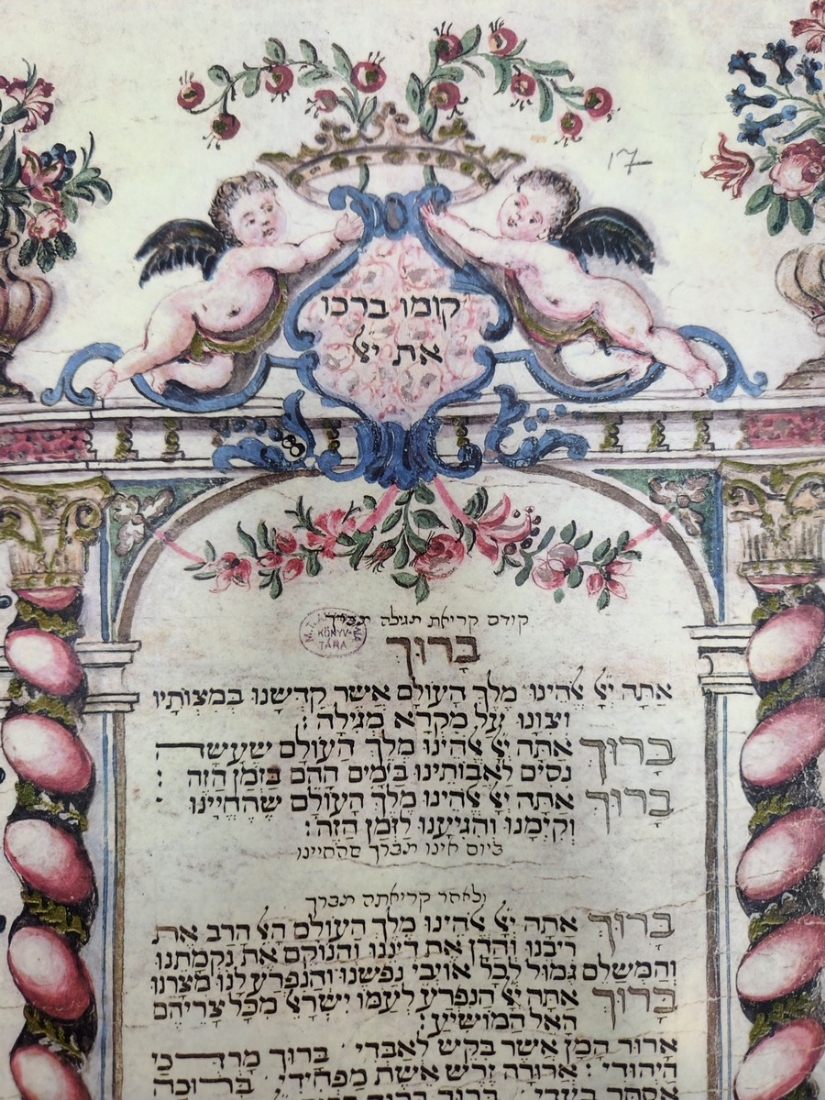 17
קומו ברכו
את יﭏ
M. T. AKADÉMIA
KÖNYV-
TÁRA
קודם קריאת מגילה תברך
בָּרוּךְ
אַתָּה יﭏ ﭏהֵינוּ מֶלֶךְ הָעוֹלָם אֲשֶׁר קִדְּשָׁנוּ בְּמִצְוֹתָיו
וְצִוָּנוּ עַל מִקְרָא מְגִילָה:
בָּרוּךְ אַתָּה יﭏ ﭏהֵינוּ מֶלֶךְ הָעוֹלָם שֶׁעָשָׂה
נִסִּים לַאֲבוֹתֵינוּ בַּיָּמִים הָהֵם בַּזְּמַן הַזֶּה:
בָּרוּךְ אַתָּה יﭏ ﭏהֵינוּ מֶלֶךְ הָעוֹלָם שֶׁהֶחֱיָינוּ
וְקִיְּמָנוּ וְהִגִּיעָנוּ לַזְּמַן הַזֶּה:
ביום אינו תברך שהחיינו
ולאחר קריאתה תברך
בָּרוּךְ אַתָּה יﭏ ﭏהֵינוּ מֶלֶךְ הָעוֹלָם הָﭏ הָרָב אֶת
רִיבֵנוּ וְהַדָּן אֶת דִּינֵנוּ וְהַנּוֹקֵם אֶת נִקְמָתֵנוּ
וְהַמְשַׁלֵּם גְּמוּל לְכָל אוֹיְבֵי נַפְשֵׁנוּ וְהַנִּפְרָע לָנוּ מִצָּרֵנוּ
בָּרוּךְ אַתָּה יﭏ הַנִּפְרָע לְעַמּוֹ יִשְׂרָﭏ מִכָּל צָרֵיהֶם
הָאֵל הַמּוֹשִׁיעַ:
אָרוּר הָמָן אֲשֶׁר בִּקֵּשׁ לְאַבְּדִי. בָּרוּךְ מָרְדֳּכַי
הַיְּהוּדִי: אֲרוּרָה זֶרֶשׁ אֵשֶׁת מַפְחִידִי. בְּרוּכָה
אֶסְתֵּר בַּעֲדִי. ברוך